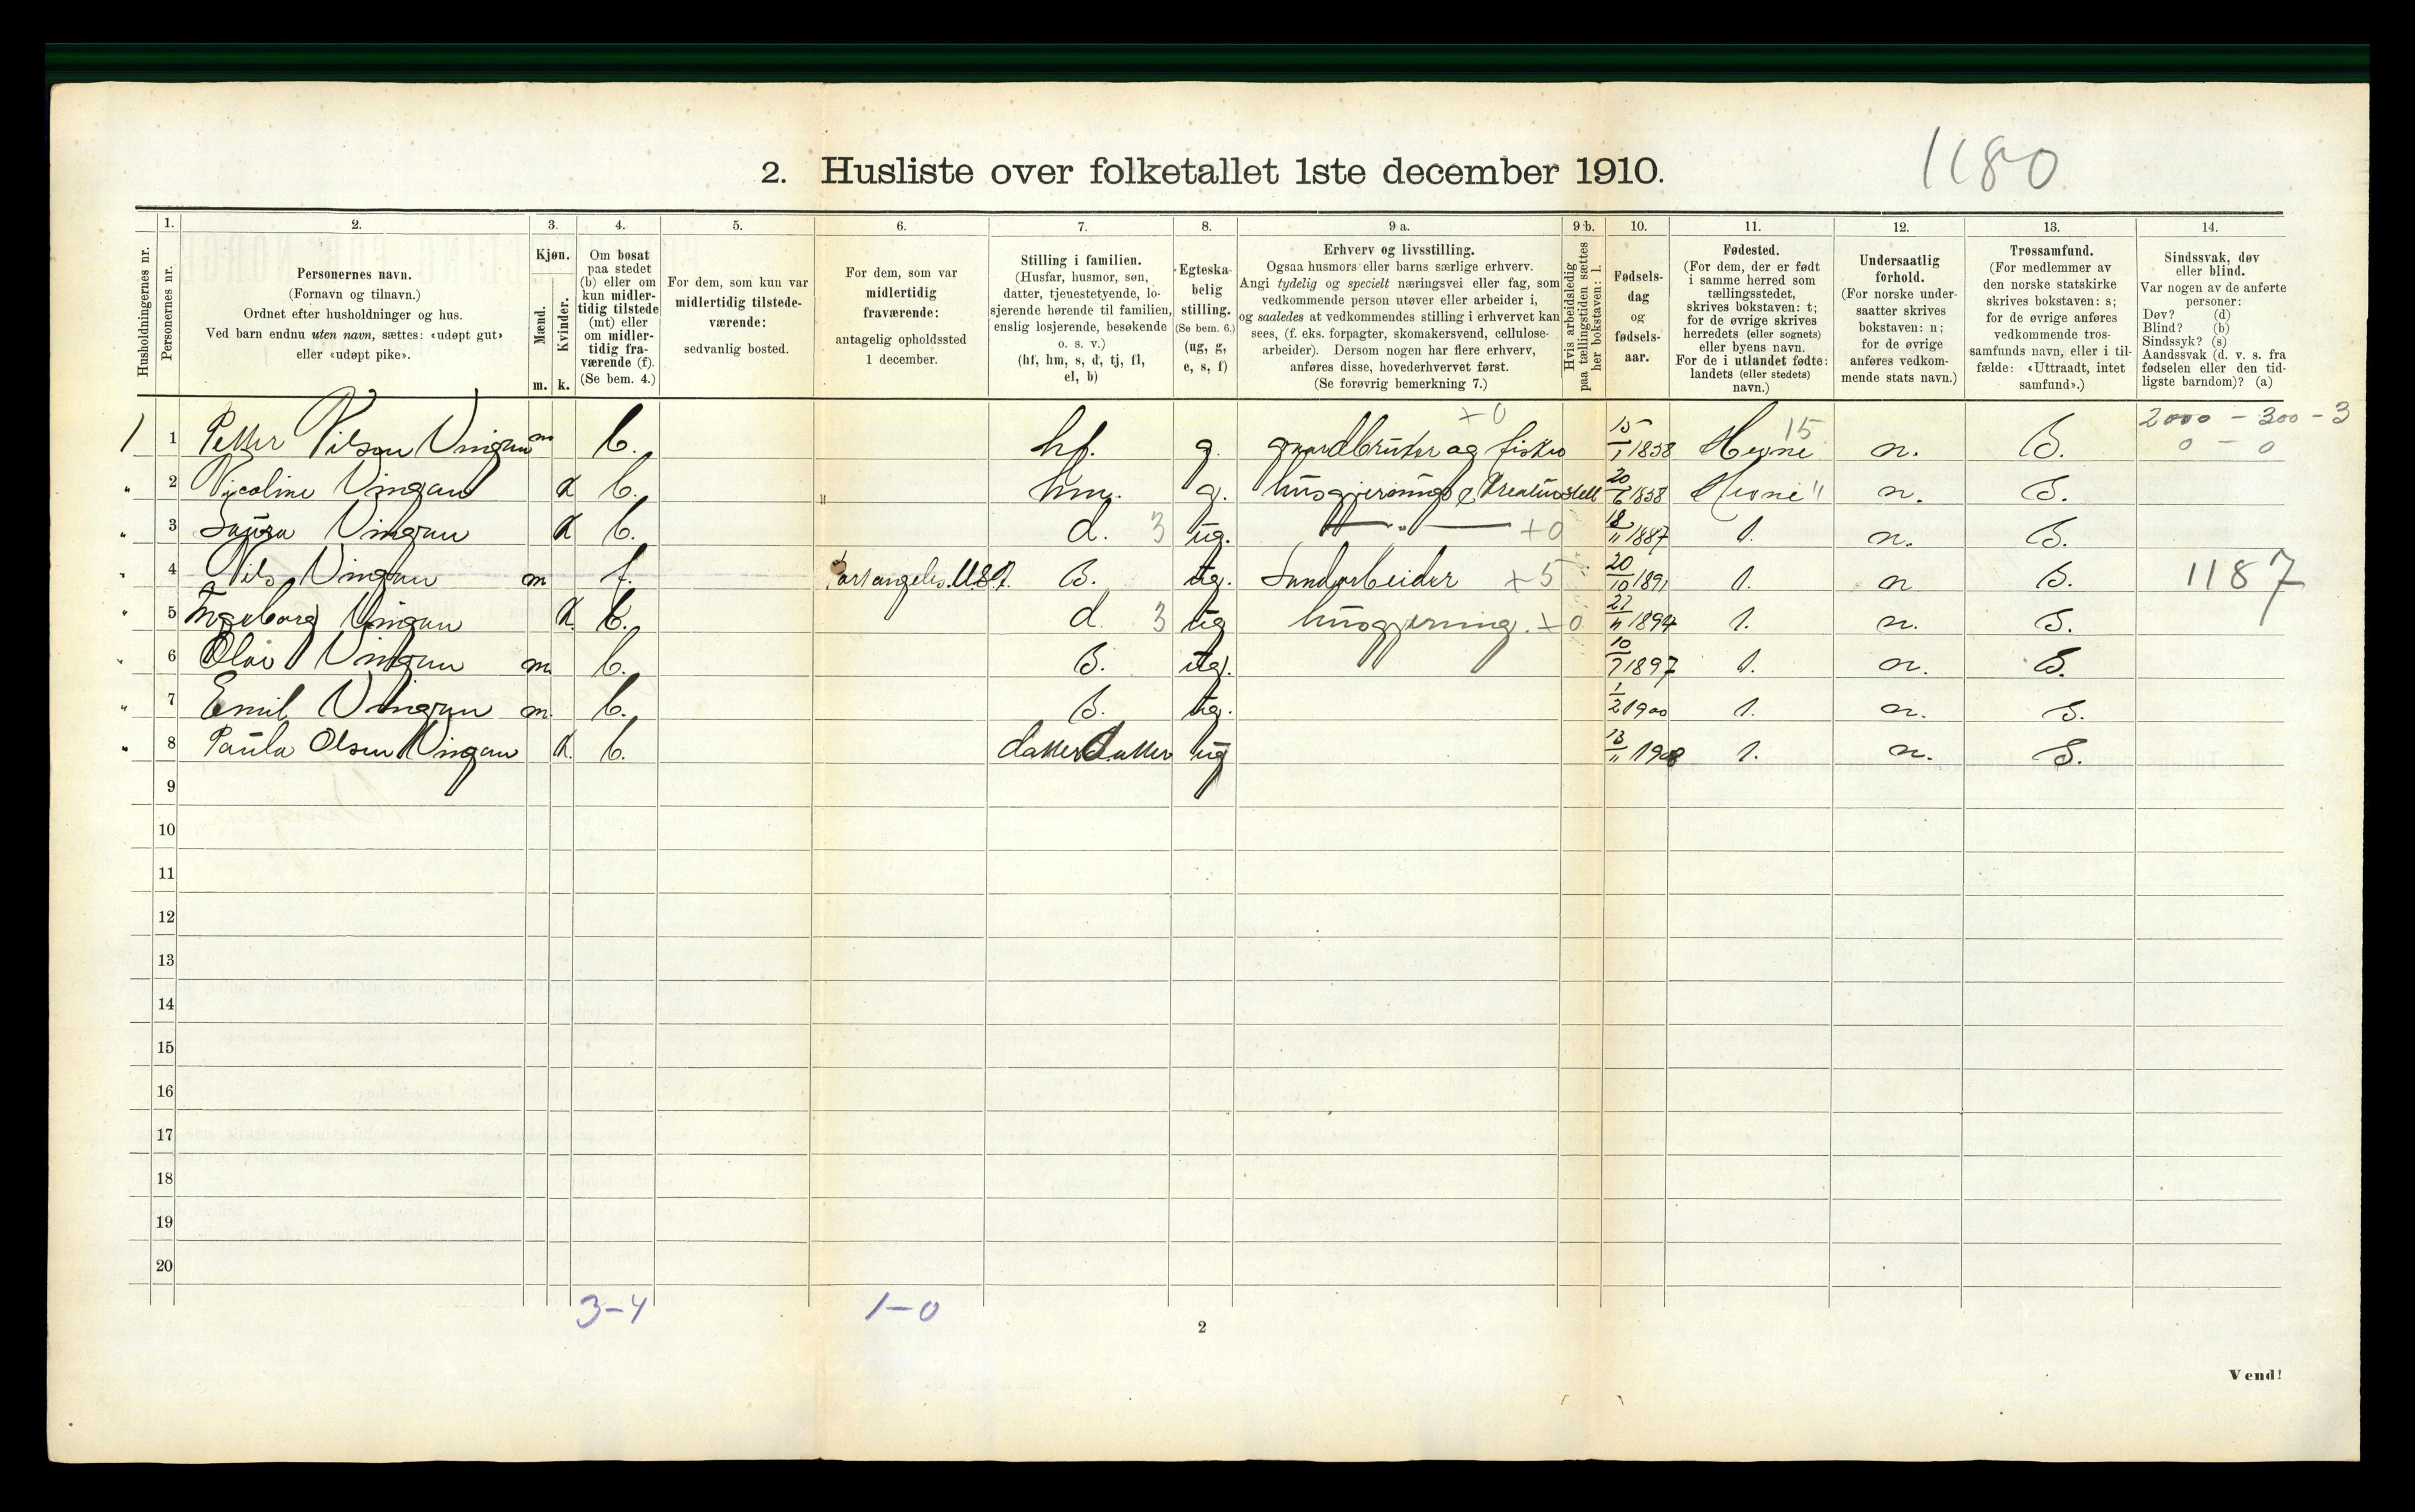 1180
2. Husliste over folketallet 1ste december 1910.
Husholdningernes nr.
1.
Personernes nr.
2.
Personernes navn.
(Fornavn og tilnavn.)
Ordnet efter husholdninger og hus.
Ved barn endnu uten navn, sættes: «udøpt gut»
eller «udøpt pike».
3.
Kjøn.
Mænd.
Kvinder.
m. k.
4.
Om bosat
paa stedet
(b) eller om
kun midler-
tidig tilstede
(mt) eller
om midler-
tidig fra-
værende (f).
(Se bem. 4.)
5.
For dem, som kun var
midlertidig tilstede-
værende:
sedvanlig bosted.
6.
For dem, som var
midlertidig
fraværende:
antagelig opholdssted
1 december.
7.
Stilling i familien.
(Husfar, husmor, søn,
datter, tjenestetyende, lo-
sjerende hørende til familien,
enslig losjerende, besøkende
o. s. v.)
(hf, hm, s, d, tj, fl,
el, b)
8.
Egteska-
belig
stilling.
(Se bem. 6.)
(ug, g,
e, s, f)
9 a.
Erhverv og livsstilling.
Ogsaa husmors eller barns særlige erhverv.
Angi tydelig og specielt næringsvei eller fag, som
vedkommende person utøver eller arbeider i,
og saaledes at vedkommendes stilling i erhvervet kan
sees, (f. eks. forpagter, skomakersvend, cellulose-
arbeider). Dersom nogen har flere erhverv,
anføres disse, hovederhvervet først.
(Se forøvrig bemerkning 7.)
9 b.
Hvis arbeidsledig
paa tællingstiden sættes
her bokstaven: l.
10.
Fødsels-
dag
og
fødsels-
aar.
11.
Fødested.
(For dem, der er født
i samme herred som
tællingsstedet,
skrives bokstaven: t;
for de øvrige skrives
herredets (eller sognets)
eller byens navn.
For de i utlandet fødte:
landets (eller stedets)
navn.)
12.
Undersaatlig
forhold.
(For norske under-
saatter skrives
bokstaven: n;
for de øvrige
anføres vedkom-
mende stats navn.)
13.
Trossamfund.
(For medlemmer av
den norske statskirke
skrives bokstaven: s;
for de øvrige anføres
vedkommende tros-
samfunds navn, eller i til-
fælde: «Uttraadt, intet
samfund».)
14.
Sindssvak, døv
eller blind.
Var nogen av de anførte
personer:
Døv? (d)
Blind? (b)
Sindssyk? (s)
Aandssvak (d. v. s. fra
fødselen eller den tid-
ligste barndom)? (a)
+0 15 2000 - 300 - 3
0 - 0
1 1 Petter Nilsen Vingan m b. hf. g. gaardbruker og fisker 15/1 1858 Hevne n. S.
" 2 Nicoline Vingan k b. hm. g. husgjerning & kreaturstell 20/6 1858 Hevne " n. S.
" 3 Laura Vingan k b. d. 3 ug. — " — +0 18/11 1887 t. n. S.
" 4 Nils Vingan m f. Portangeles. U.S.A. S. ug. Sandarbeider +5 20/10 1891 t. n S. 1187
" 5 Ingeborg Vingan k. b. d. 3 ug husgjerning. +0 27/11 1894 t. n. S.
" 6 Olav Vingan m. b. S. ug. 10/7 1897 t. n. S.
" 7 Emil Vingan m. b. S. ug. 1/2 1900 t. n. S.
" 8 Paula Olsen Vingan k. b. datterdatter ug 13/11 1908 t. n. S.
9
10
11
12
13
14
15
16
17
18
19
20
3-4 1-0
2
Vend!